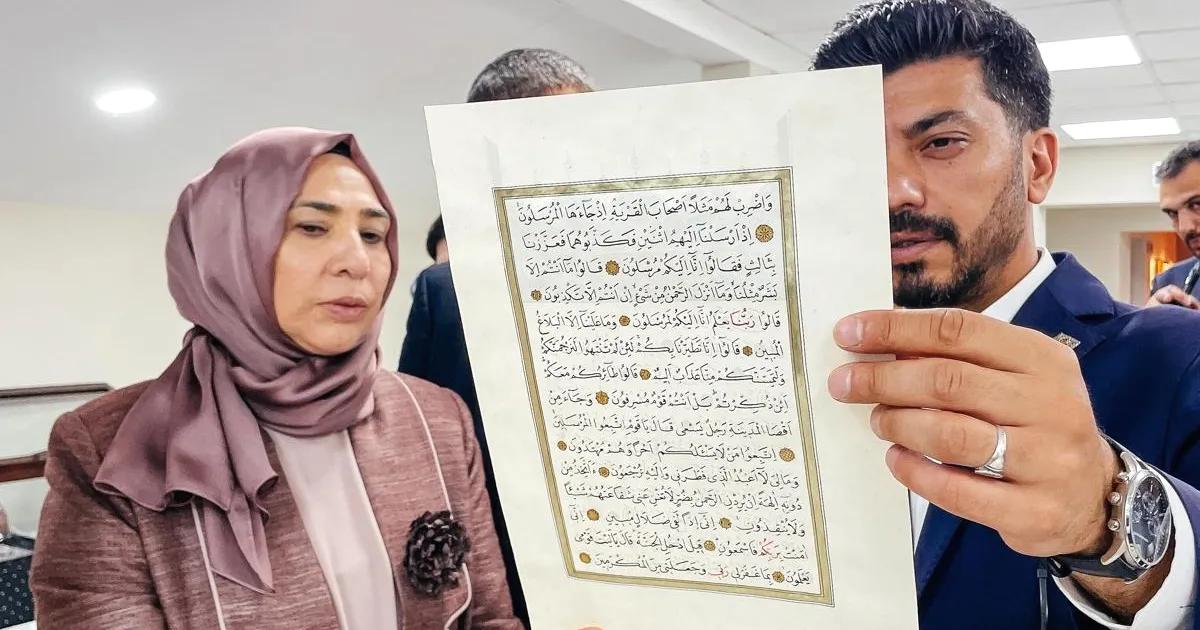 وَاضْرِبْ لَهُمْ مَثَلًا اَصْحَابَ الْقَرْيَةِ اِذْ جَٓاءَهَا الْمُرْسَلُونَ
اِذْ اَرْسَلْنَٓا اِلَيْهِمُ اثْنَيْنِ فَكَذَّبُوهُمَا فَعَزَّزْنَا
بِثَالِثٍ فَقَالُٓوا اِنَّٓا اِلَيْكُمْ مُرْسَلُونَ قَالُوا مَٓا اَنْتُمْ اِلَّا
بَشَرٌ مِثْلُنَا وَمَٓا اَنْزَلَ الرَّحْمٰنُ مِنْ شَيْءٍ اِنْ اَنْتُمْ اِلَّا تَكْذِبُونَ
قَالُوا رَبُّنَا يَعْلَمُ اِنَّٓا اِلَيْكُمْ لَمُرْسَلُونَ وَمَا عَلَيْنَٓا اِلَّا الْبَلَاغُ
الْمُبِينُ قَالُٓوا اِنَّا تَطَيَّرْنَا بِكُمْ لَئِنْ لَمْ تَنْتَهُوا لَنَرْجُمَنَّكُمْ
وَلَيَمَسَّنَّكُمْ مِنَّا عَذَابٌ اَلِيمٌ قَالُوا طَٓائِرُكُمْ مَعَكُمْ
اَئِنْ ذُكِّرْتُمْ بَلْ اَنْتُمْ قَوْمٌ مُسْرِفُونَ وَجَٓاءَ مِنْ
اَقْصَا الْمَدِينَةِ رَجُلٌ يَسْعٰى قَالَ يَا قَوْمِ اتَّبِعُوا الْمُرْسَلِينَ
اِتَّبِعُوا مَنْ لَا يَسْـَٔلُكُمْ اَجْرًا وَهُمْ مُهْتَدُونَ
وَمَا لِيَ لَٓا اَعْبُدُ الَّذِي فَطَرَنِي وَاِلَيْهِ تُرْجَعُونَ ءَاَتَّخِذُ مِنْ
دُونِهِٓ اٰلِهَةً اِنْ يُرِدْنِ الرَّحْمٰنُ بِضُرٍّ لَا تُغْنِ عَنِّي شَفَاعَتُهُمْ شَيْـًٔا
وَلَا يُنْقِذُونِ اِنِّٓي اِذًا لَفِي ضَلَالٍ مُبِينٍ اِنِّٓي
اٰمَنْتُ بِرَبِّكُمْ فَاسْمَعُونِ قِيلَ ادْخُلِ الْجَنَّةَ قَالَ يَا لَيْتَ قَوْمِي
يَعْلَمُونَ بِمَا غَفَرَ لِي رَبِّي وَجَعَلَنِي مِنَ الْمُكْرَمِينَ